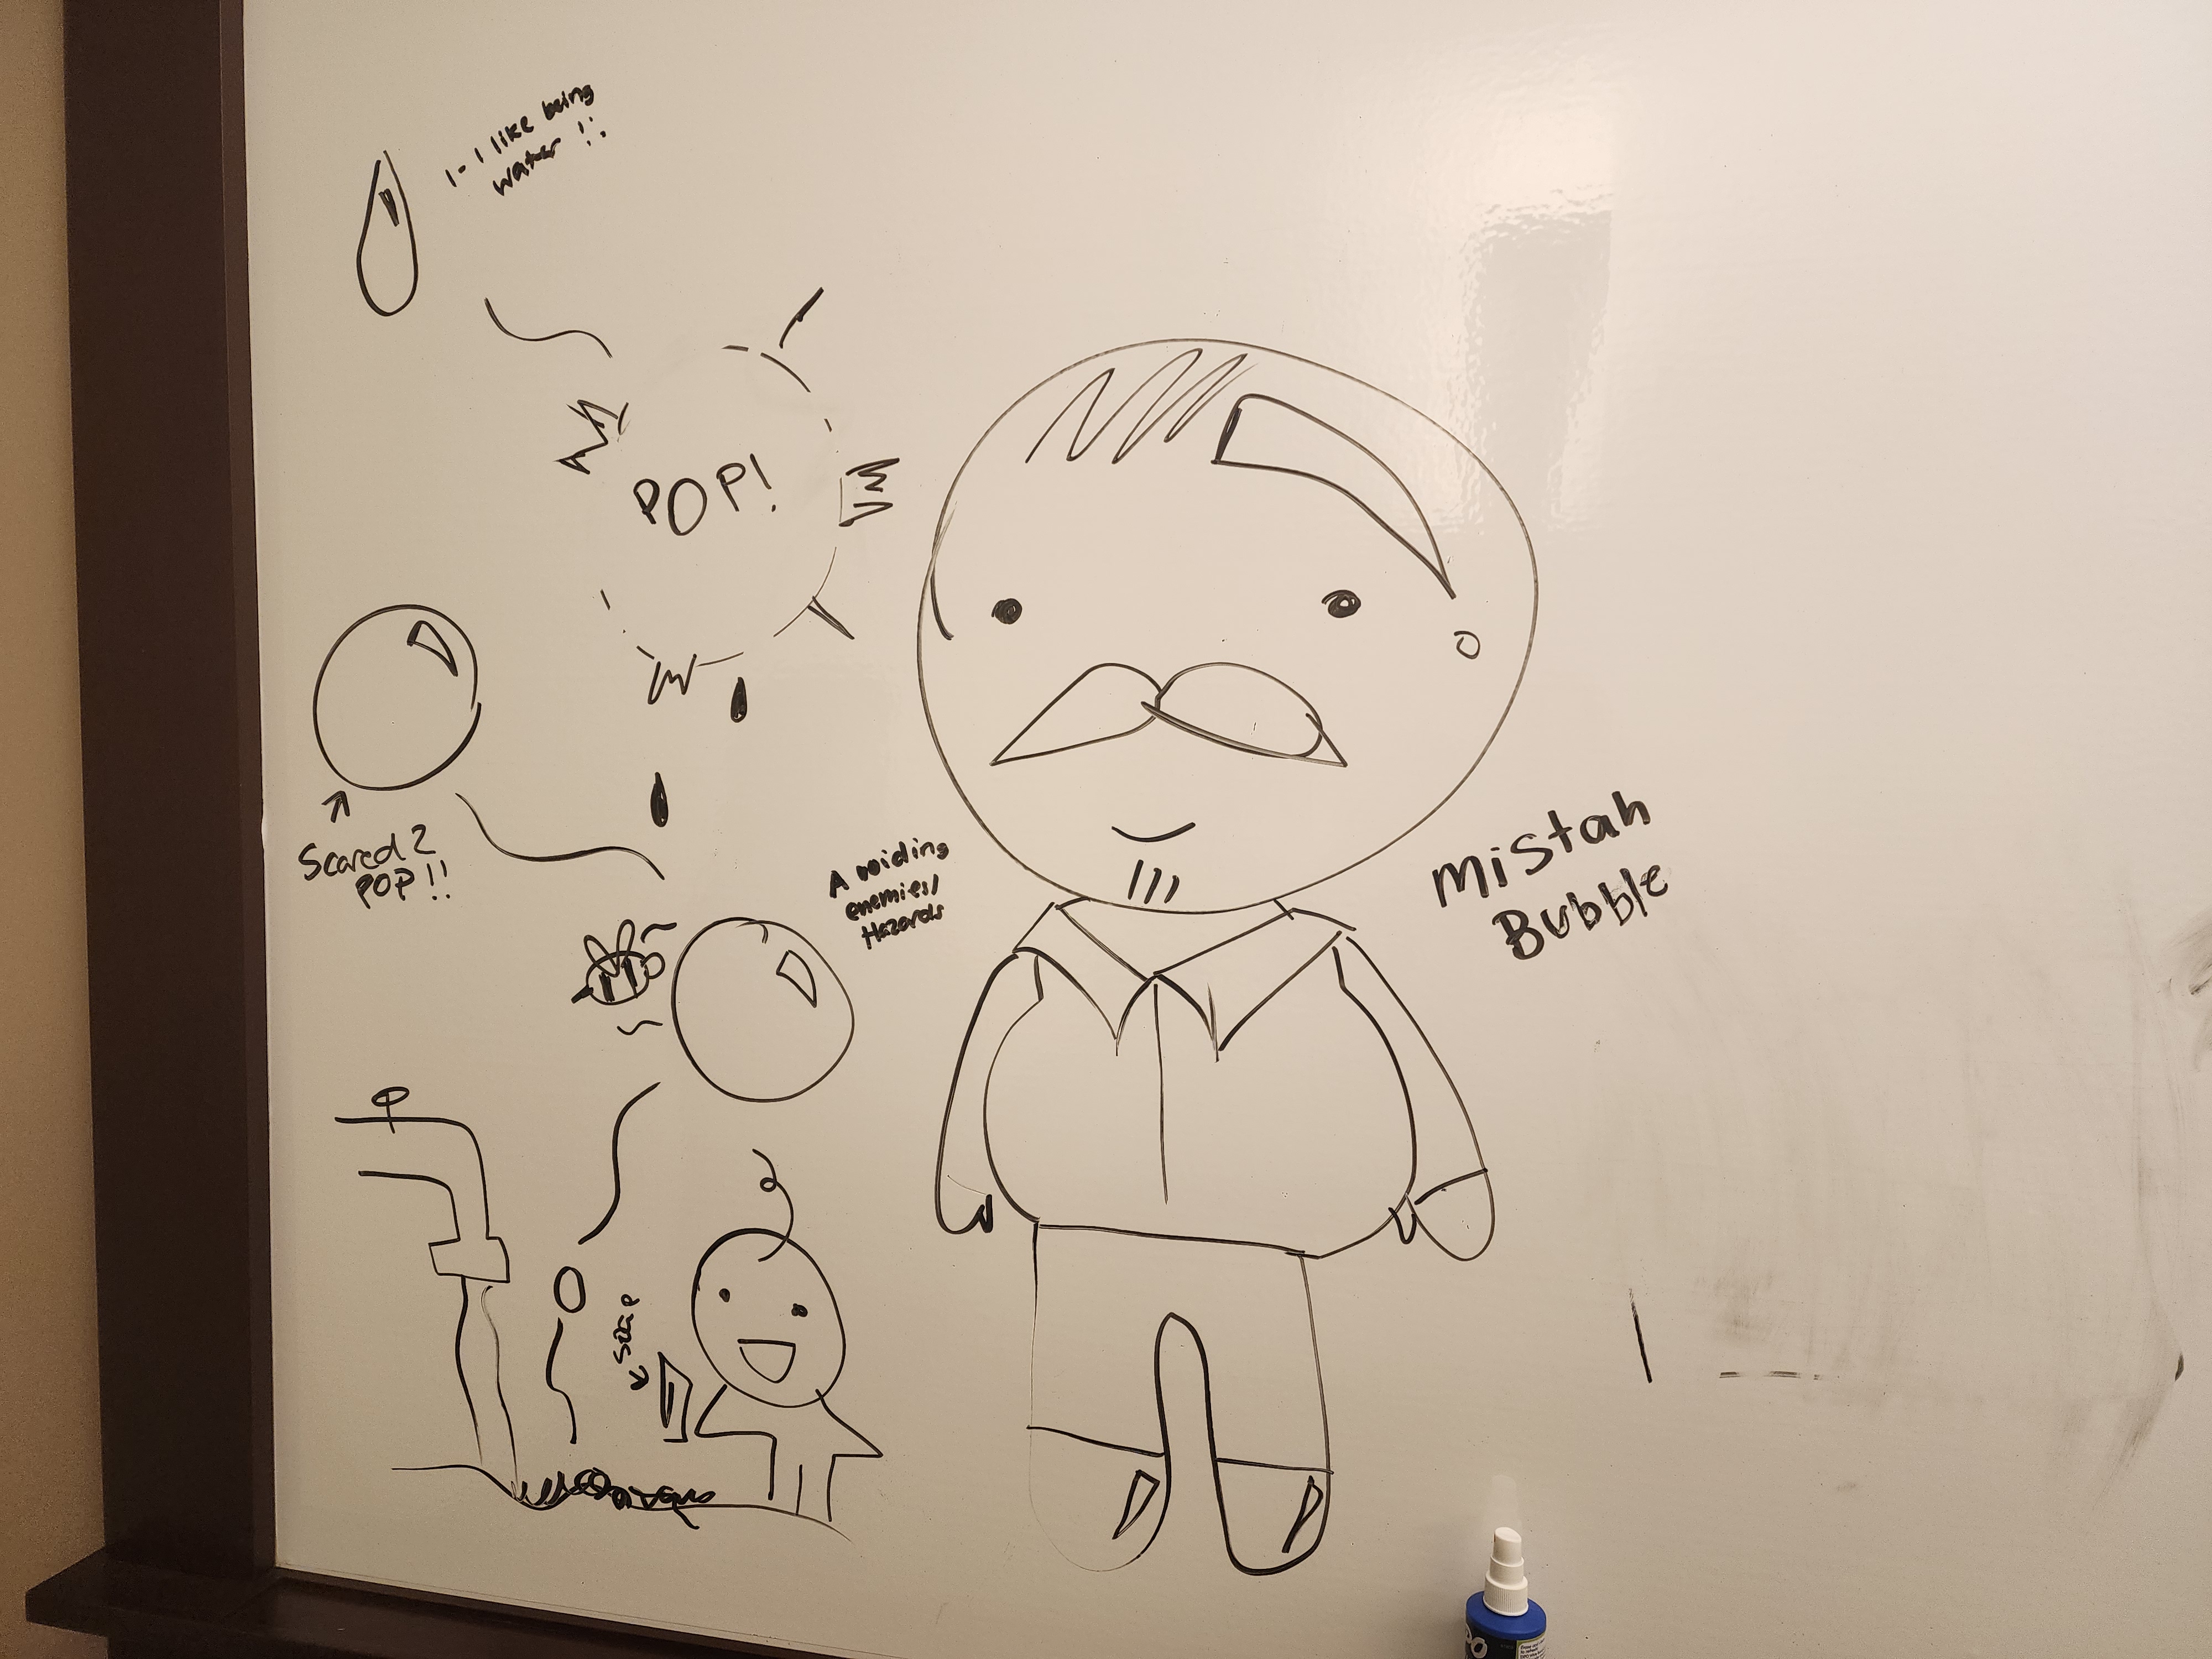 I-I like being
water !!
POP!
Scared 2
POP!!
Avoiding
enemies/
Hazards
Mistah
Bubble